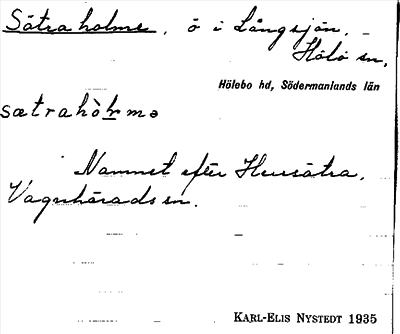 Sätra holme, ö i Långsjön, -
Hölö sn,
Hölebo hd, Södermanlands län
sætrahòlmə
Namnet efter Hussätra,
Vagnhärads sn.
KARL-ELIS NYSTEDT 1935